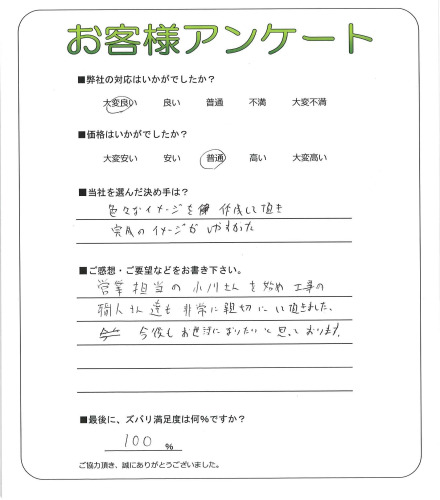 お客様アンケート
■弊社の対応はいかがでしたか?
大変良い 良い 普通 不満 大変不満
■価格はいかがでしたか?
大変安い 安い 普通 高い 大変高い
■当社を選んだ決め手は?
色々なイメージを 作成して頂き
完成のイメージが しやすかった
■ご感想・ご要望などをお書き下さい。
営業担当の小川さんを始め工事の
職人さん達も非常に親切にして頂きました、
今後もお世話になりたいと思っております。
■最後に、ズバリ満足度は何%ですか?
100 %
ご協力頂き、誠にありがとうございました。